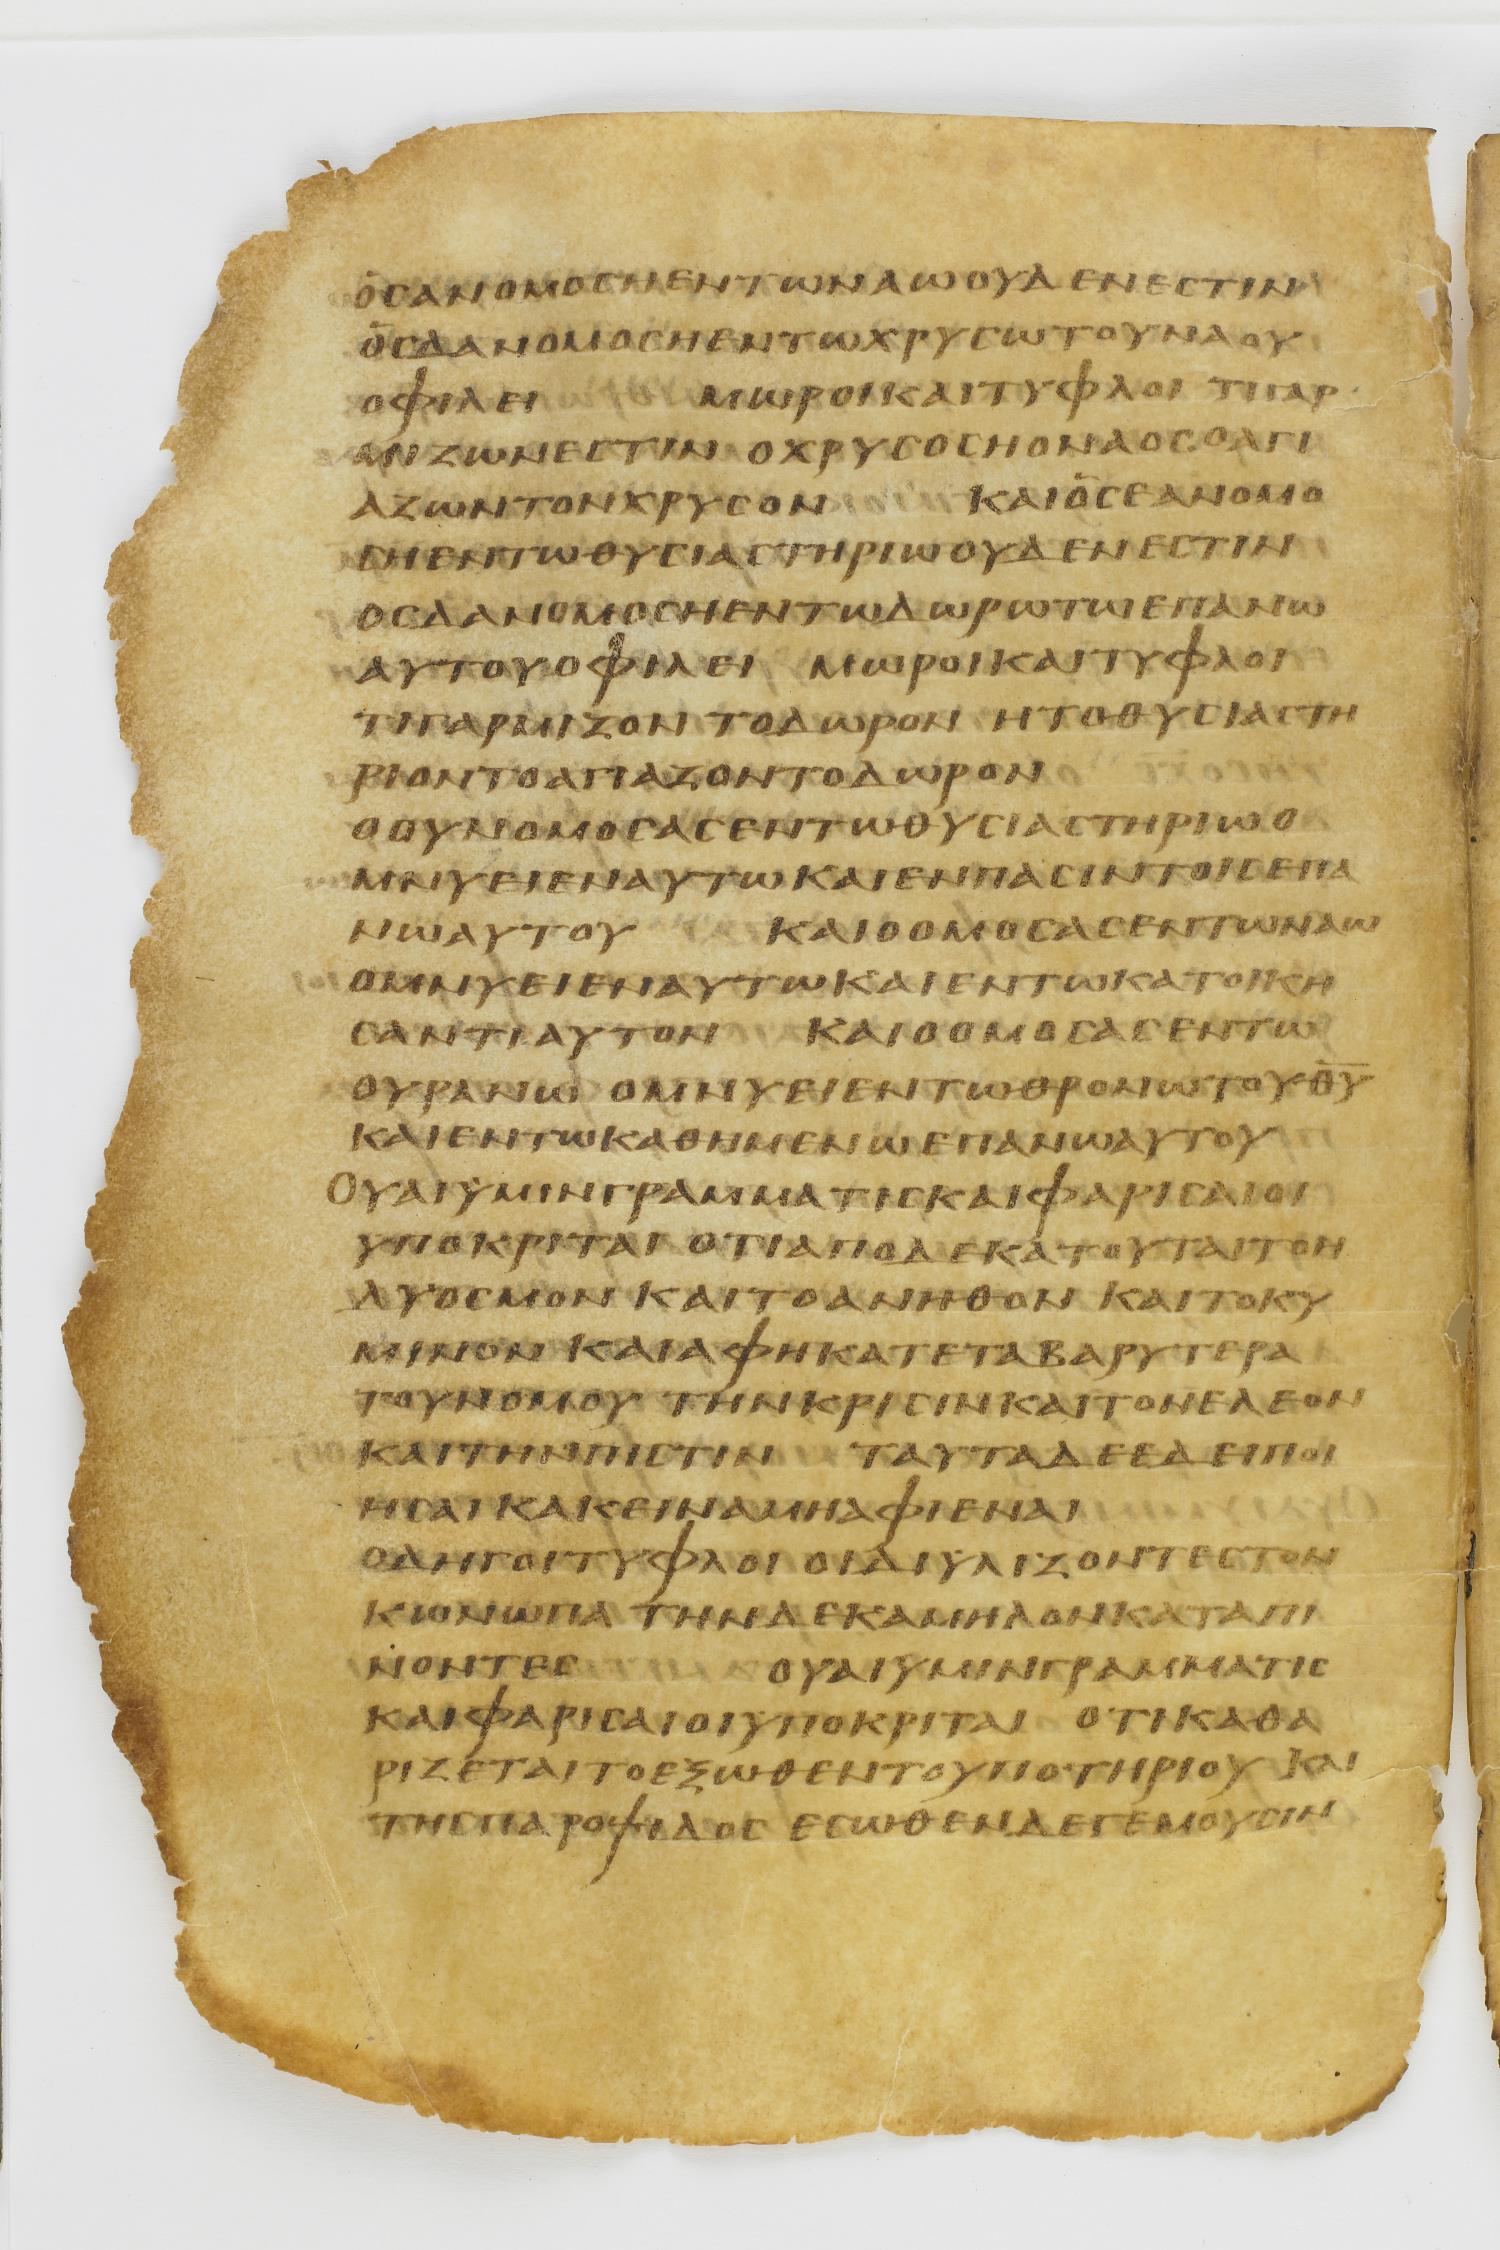 ὁϲανομοϲηεντωναωουδενεϲτιν
ὁϲδανομοϲηεντωχρυϲωτουναου
οφιλει μωροικαιτυφλοι τιγαρ
μιζωνεϲτιν οχρυϲοϲηοναοϲοαγι
αζωντονχρυϲον καιὁϲεανομο
ϲηεντωθυϲιαϲτηριωουδενεϲτιν
οϲδανομοϲηεντωδωρωτωεπανω
αυτουοφιλει μωροικαιτυφλοι
τιγαρμιζον τοδωρον ητοθυϲιαϲτη
ριοντοαγιαζοντοδωρον
οουνομοϲαϲεντωθυϲιαϲτηριωο
μνυειεναυτωκαιενπαϲιντοιϲεπα
νωαυτου καιοομοϲαϲεντωναω
ομνυειεναυτωκαιεντωκατοικη
ϲαντιαυτον καιοομοϲαϲεντω
ουρανω ομνυειεντωθρονωτουθ̅υ̅
καιεντωκαθημενωεπανωαυτου
Ουαιϋμινγραμματιϲκαιφαριϲαιοι
υποκριται οτιαποδεκατουταιτοη
δυοϲμον καιτοανηθον καιτοκυ
μινον καιαφηκατεταβαρυτερα
τουνομου τηνκριϲινκαιτονελεον
καιτηνπιϲτιν ταυταδεεδειποι
ηϲαικακειναμηαφιεναι
οδηγοιτυφλοι οιδιϋλιζοντεϲτον
κωνωπα τηνδεκαμηλονκαταπι
νοντεϲ ουαιϋμινγραμματιϲ
καιφαριϲαιοιυποκριται οτικαθα
ριζεταιτοεξωθεντουποτηριου και
τηϲπαροψιδοϲ εϲωθενδεγεμουϲιν